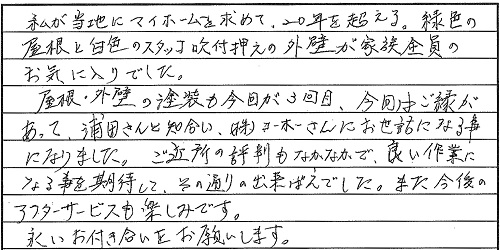 私が当地にマイホームを求めて、20年を超える。緑色の
屋根と白色のスタッコ吹付押えの外壁が家族全員の
お気に入りでした。
屋根・外壁の塗装も今回が3回目、今回はご縁が
あって、浦田さんと知合い、(株)ユーホーさんにお世話になる事
になりました。ご近所の評判もなかなかで、良い作業に
なる事を期待して、その通りの出来ばえでした。また今後の
アフターサービスも楽しみです。
永いお付き合いをお願いします。